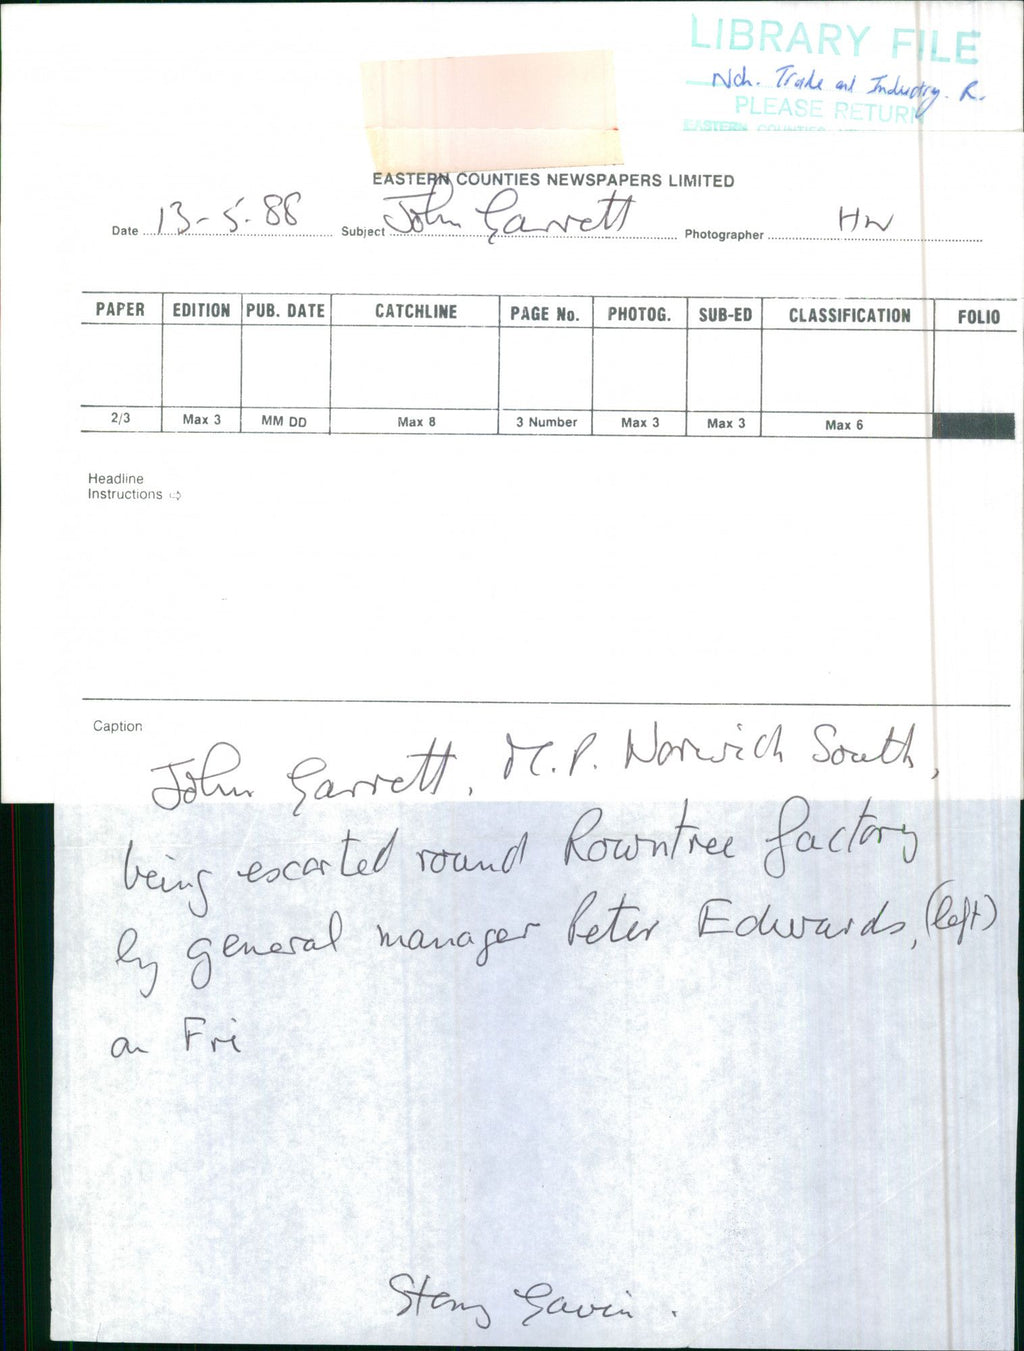 LIBRARY FILE
Nch. Trade and Industry. R.
PLEASE RETURN
EASTERN COUNTIES
EASTERN COUNTIES NEWSPAPERS LIMITED
Date 13-5-88 Subject John Garrett Photographer HW
PAPER EDITION PUB. DATE CATCHLINE PAGE No. PHOTOG. SUB-ED CLASSIFICATION FOLIO
2/3 Max 3 MM DD Max 8 3 Number Max 3 Max 3 Max 6
Headline
Instructions ⇨
Caption
John Garrett, M.P. Norwich South,
being escorted round Rowntree factory
by general manager Peter Edwards, (left)
on Fri
Story Gavin.